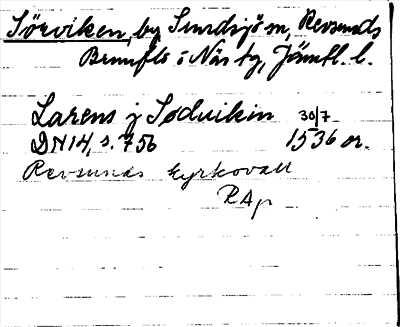 Sörviken, by Sundsjö sn, Revsunds
Brunflo o Näs tg, Jämtl. l.
Larens j Soduikin 30/7
DN14, s. 756 1536 or.
Revsunds kyrkovall
RAp